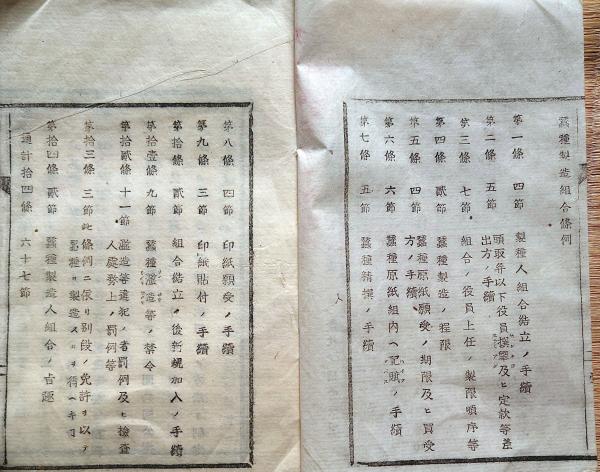 蚕種製造組合條例
第一條 四節 製種人組合結立ノ手續
第二條 五節 頭取并以下役員撰擧及ヒ定款等差
出方ノ手續
第三條 七節 組合ノ役員上任ノ製限順序等
第四條 四節 蚕種製造ノ程限
第五條 四節 蚕種原紙願受ノ期限及ヒ買受
方ノ手續
第六條 六節 蚕種原紙組内ヘ記賦ノ手續
第七條 五節 蚕種精撰ノ手續
第八條 四節 印紙願受ノ手續
第九條 三節 印紙貼付ノ手續
第拾條 貳節 組合結立ノ後新規加入ノ手續
第拾壹條 九節 蚕種濫造等ノ禁令
第拾貳條 十一節 濫造等違犯ノ者罰例及ヒ檢査
人處務上ノ罰例等
第拾三條 三節 此條例ニ依リ別段ノ免許ヲ以テ
蚕種ヲ製造スル
第拾四條 貳節 蚕種製造人組合ノ
通計拾四條 六十七節